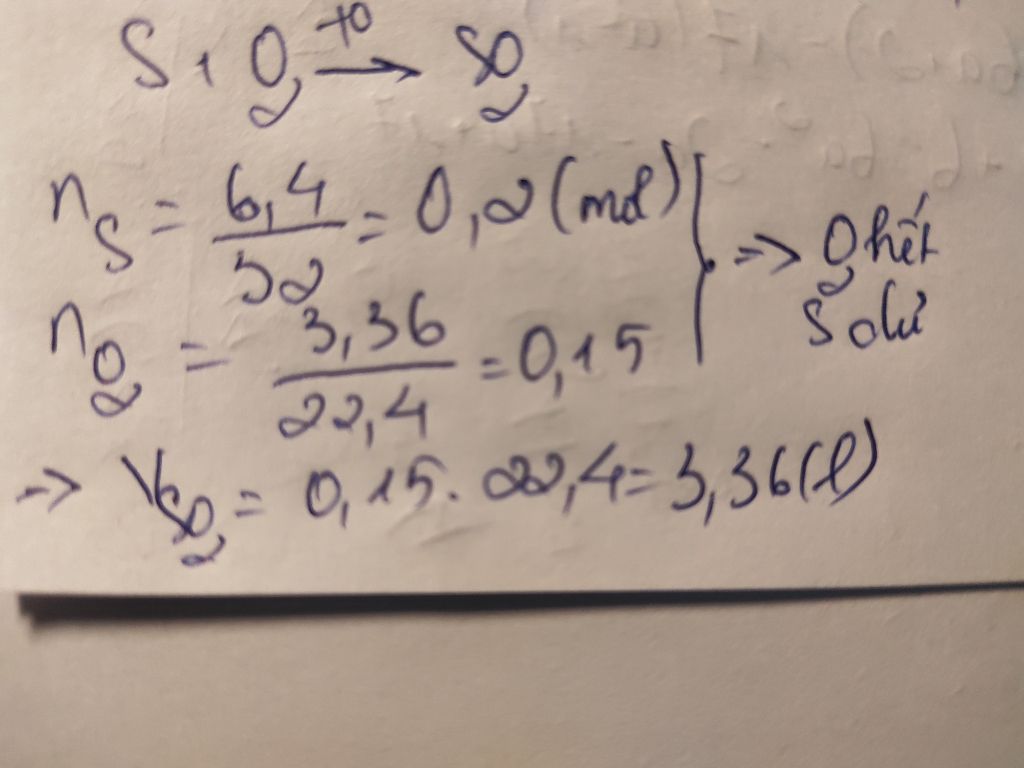 S + O₂ -t°-> SO₂
nS = 6,4/32 = 0,2 (mol)
nO₂ = 3,36/22,4 = 0,15
} => O₂ hết
S dư
=> VSO₂ = 0,15 . 22,4 = 3,36 (l)